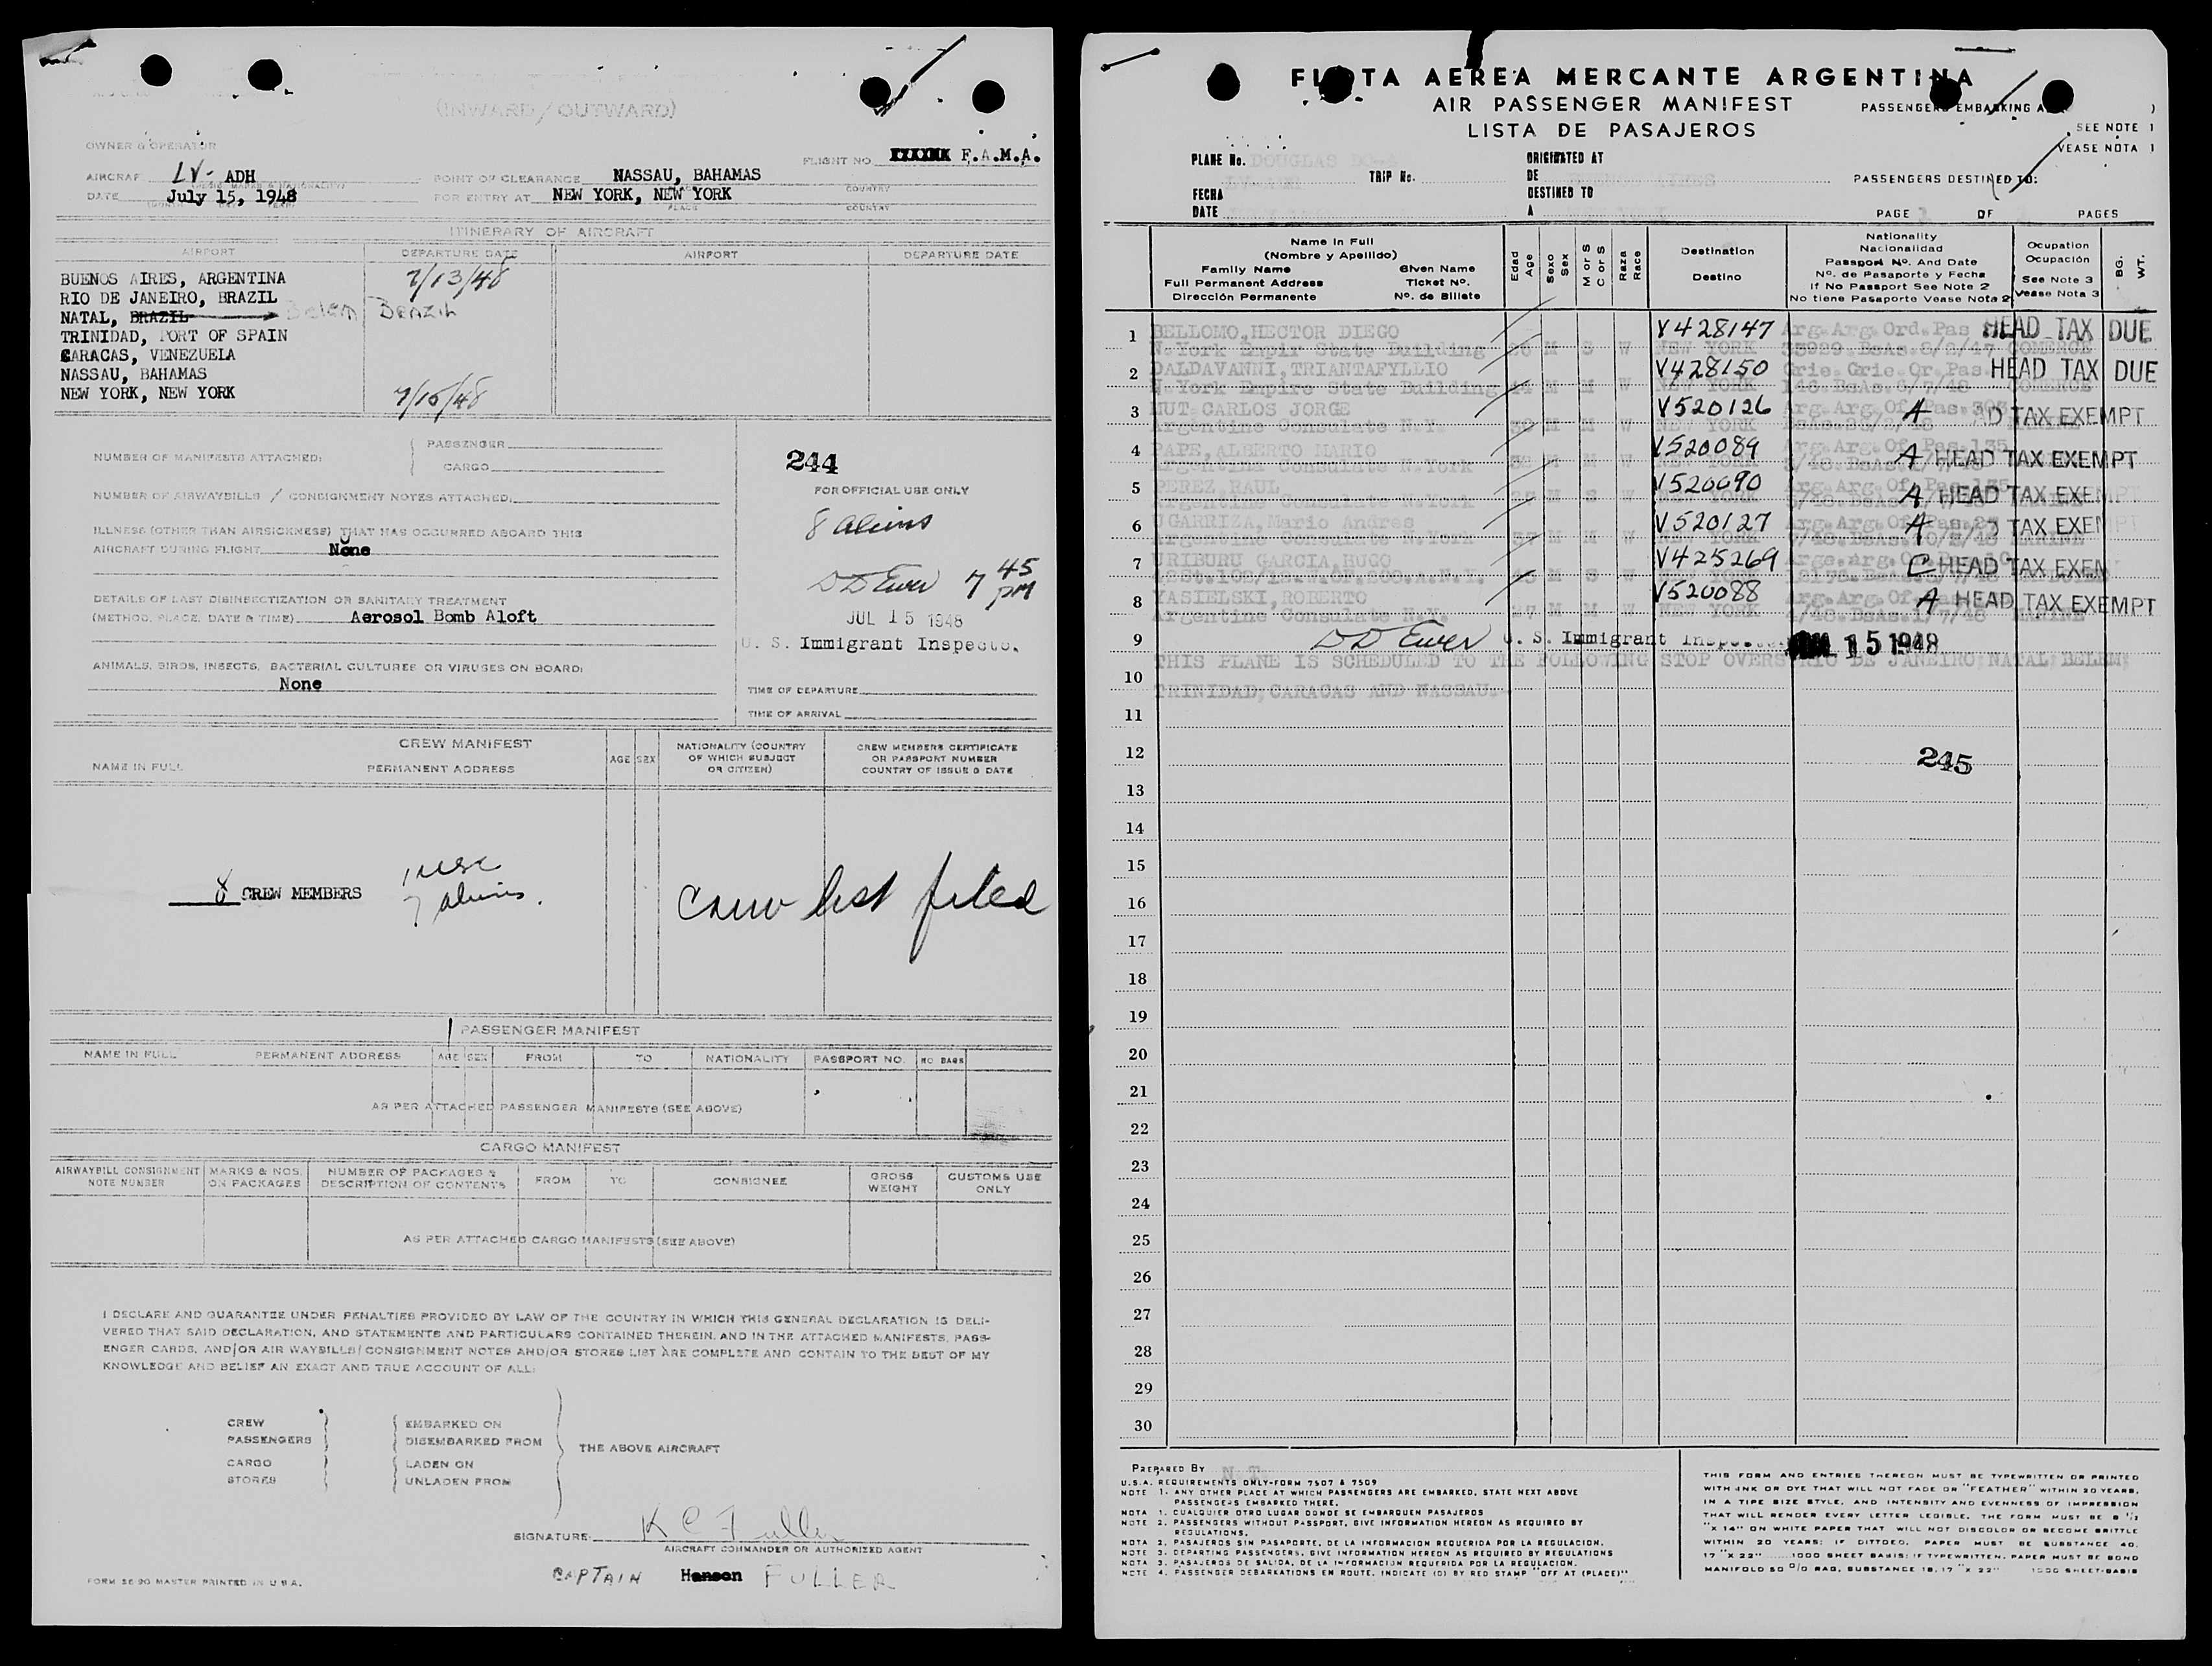 (INWARD / OUTWARD)
OWNER & OPERATOR
FLIGHT NO. F.A.M.A.
AIRCRAF LV- ADH
POINT OF CLEARANCE NASSAU, BAHAMAS
COUNTRY
DATE July 15, 1948
FOR ENTRY AT NEW YORK, NEW YORK
PLACE COUNTRY
ITINERARY OF AIRCRAFT
AIRPORT DEPARTURE DATE AIRPORT DEPARTURE DATE
BUENOS AIRES, ARGENTINA 7/13/48
RIO DE JANEIRO, BRAZIL
NATAL, BRAZIL Belem Brazil
TRINIDAD, PORT OF SPAIN
CARACAS, VENEZUELA
NASSAU, BAHAMAS
NEW YORK, NEW YORK 7/15/48
NUMBER OF MANIFESTS ATTACHED:
PASSENGER
CARGO
244
NUMBER OF AIRWAYBILLS / CONSIGNMENT NOTES ATTACHED:
FOR OFFICIAL USE ONLY
8 aliens
ILLNESS (OTHER THAN AIRSICKNESS) THAT HAS OCCURRED ABOARD THIS
AIRCRAFT DURING FLIGHT None
DD Ewer 7 45 PM
DETAILS OF LAST DISINSECTIZATION OR SANITARY TREATMENT
(METHOD, PLACE, DATE & TIME) Aerosol Bomb Aloft
JUL 15 1948
U. S. Immigrant Inspecto.
ANIMALS, BIRDS, INSECTS, BACTERIAL CULTURES OR VIRUSES ON BOARD:
None
TIME OF DEPARTURE
TIME OF ARRIVAL
CREW MANIFEST
NAME IN FULL PERMANENT ADDRESS AGE SEX
NATIONALITY (COUNTRY OF WHICH SUBJECT OR CITIZEN)
CREW MEMBERS CERTIFICATE OR PASSPORT NUMBER COUNTRY OF ISSUE & DATE
8 CREW MEMBERS
1 usc
7 aliens.
Crew list filed
PASSENGER MANIFEST
NAME IN FULL PERMANENT ADDRESS AGE SEX FROM TO NATIONALITY PASSPORT NO. NO BAGS
AS PER ATTACHED PASSENGER MANIFESTS (SEE ABOVE)
CARGO MANIFEST
AIRWAYBILL CONSIGNMENT NOTE NUMBER
MARKS & NOS. ON PACKAGES
NUMBER OF PACKAGES & DESCRIPTION OF CONTENTS
FROM TO CONSIGNEE
GROSS WEIGHT
CUSTOMS USE ONLY
AS PER ATTACHED CARGO MANIFESTS (SEE ABOVE)
I DECLARE AND GUARANTEE UNDER PENALTIES PROVIDED BY LAW OF THE COUNTRY IN WHICH THIS GENERAL DECLARATION IS DELI-
VERED THAT SAID DECLARATION, AND STATEMENTS AND PARTICULARS CONTAINED THEREIN, AND IN THE ATTACHED MANIFESTS, PASS-
ENGER CARDS, AND/OR AIR WAYBILLS/CONSIGNMENT NOTES AND/OR STORES LIST ARE COMPLETE AND CONTAIN TO THE BEST OF MY
KNOWLEDGE AND BELIEF AN EXACT AND TRUE ACCOUNT OF ALL:
CREW EMBARKED ON
PASSENGERS DISEMBARKED FROM
THE ABOVE AIRCRAFT
CARGO LADEN ON
STORES UNLADEN FROM
SIGNATURE: K C Fuller
AIRCRAFT COMMANDER OR AUTHORIZED AGENT
CAPTAIN Hanson FULLER
FORM SE 90 MASTER PRINTED IN U S A.
FLOTA AEREA MERCANTE ARGENTINA
AIR PASSENGER MANIFEST
LISTA DE PASAJEROS
PASSENGERS EMBARKING A )
SEE NOTE 1
VEASE NOTA 1
PLANE No. DOUGLAS DC-4
TRIP No.
ORIGINATED AT
DE
PASSENGERS DESTINED TO:
FECHA
DATE
DESTINED TO
A
PAGE 1 OF PAGES
Name In Full
(Nombre y Apellido)
Family Name Given Name
Full Permanent Address Ticket No.
Dirección Permanente Nº. de Billete
Edad Age
Sexo Sex
M or S C or S
Raza Race
Destination
Destino
Nationality
Nacionalidad
Passport Nº. And Date
Nº. de Pasaporte y Fecha
If No Passport See Note 2
No tiene Pasaporte Vease Nota 2
Ocupation
Ocupación
See Note 3
Vease Nota 3
BG. WT.
1 BELLOMO, HECTOR DIEGO V428147 Arg. Arg. Ord. Pas HEAD TAX DUE
N. York Empir State Building M S W NEW YORK
2 DALDAVANNI, TRIANTAFYLLIO V428150 HEAD TAX DUE
N. York Empire State Building M M W NEW YORK
3 HUT CARLOS JORGE V520126 Arg. Arg. Of. Pas. A AD TAX EXEMPT
Argentine Consulate N.Y. M M W NEW YORK
4 PAPE, ALBERTO MARIO V520089 Arg. Arg. Of. Pas. 135 A HEAD TAX EXEMPT
Argentine Consulate N.York
5 PEREZ, RAUL V520090 Arg. Arg. Of. Pas. A HEAD TAX EXE
Argentine Consulate N.York
6 UGARRIZA, Mario Andres V520127 Arg. Arg. Of. Pas. A D TAX EXEM
Argentine Consulate N.York
7 URIBURU GARCIA, HUGO V425269 C HEAD TAX EXEM
8 YASIELSKI, ROBERTO V520088 Arg. Arg. Of. A HEAD TAX EXEMPT
Argentine Consulate N.Y. 27 M M W NEW YORK
9 DD Ewer U. S. Immigrant Inspe 15 1948
THIS PLANE IS SCHEDULED TO THE FOLLOWING STOP OVERS RIO DE JANEIRO, NATAL, BELEN,
10 TRINIDAD, CARACAS AND NASSAU.-
11
12 245
13
14
15
16
17
18
19
20
21
22
23
24
25
26
27
28
29
30
PREPARED BY
U.S.A. REQUIREMENTS ONLY-FORM 7507 & 7509
NOTE 1. ANY OTHER PLACE AT WHICH PASSENGERS ARE EMBARKED, STATE NEXT ABOVE
PASSENGERS EMBARKED THERE.
NOTA 1. CUALQUIER OTRO LUGAR DONDE SE EMBARQUEN PASAJEROS
NOTE 2. PASSENGERS WITHOUT PASSPORT, GIVE INFORMATION HEREON AS REQUIRED BY
REGULATIONS.
NOTA 2. PASAJEROS SIN PASAPORTE, DE LA INFORMACION REQUERIDA POR LA REGULACION.
NOTE 3. DEPARTING PASSENGERS, GIVE INFORMATION HEREON AS REQUIRED BY REGULATIONS
NOTA 3. PASAJEROS DE SALIDA, DE LA INFORMACION REQUERIDA POR LA REGULACION.
NOTE 4. PASSENGER DEBARKATIONS EN ROUTE, INDICATE (D) BY RED STAMP "OFF AT (PLACE)"
THIS FORM AND ENTRIES THEREON MUST BE TYPEWRITTEN OR PRINTED
WITH INK OR DYE THAT WILL NOT FADE OR "FEATHER" WITHIN 20 YEARS,
IN A TIPE SIZE STYLE, AND INTENSITY AND EVENNESS OF IMPRESSION
THAT WILL RENDER EVERY LETTER LEGIBLE. THE FORM MUST BE 8 1/2
"X 14" ON WHITE PAPER THAT WILL NOT DISCOLOR OR BECOME BRITTLE
WITHIN 20 YEARS; IF DITTOED, PAPER MUST BE SUBSTANCE 40,
17 "X 22" 1000 SHEET BASIS; IF TYPEWRITTEN, PAPER MUST BE BOND
MANIFOLD 50 0/0 RAG, SUBSTANCE 16, 17 "X 22" 1000 SHEET-BASIS